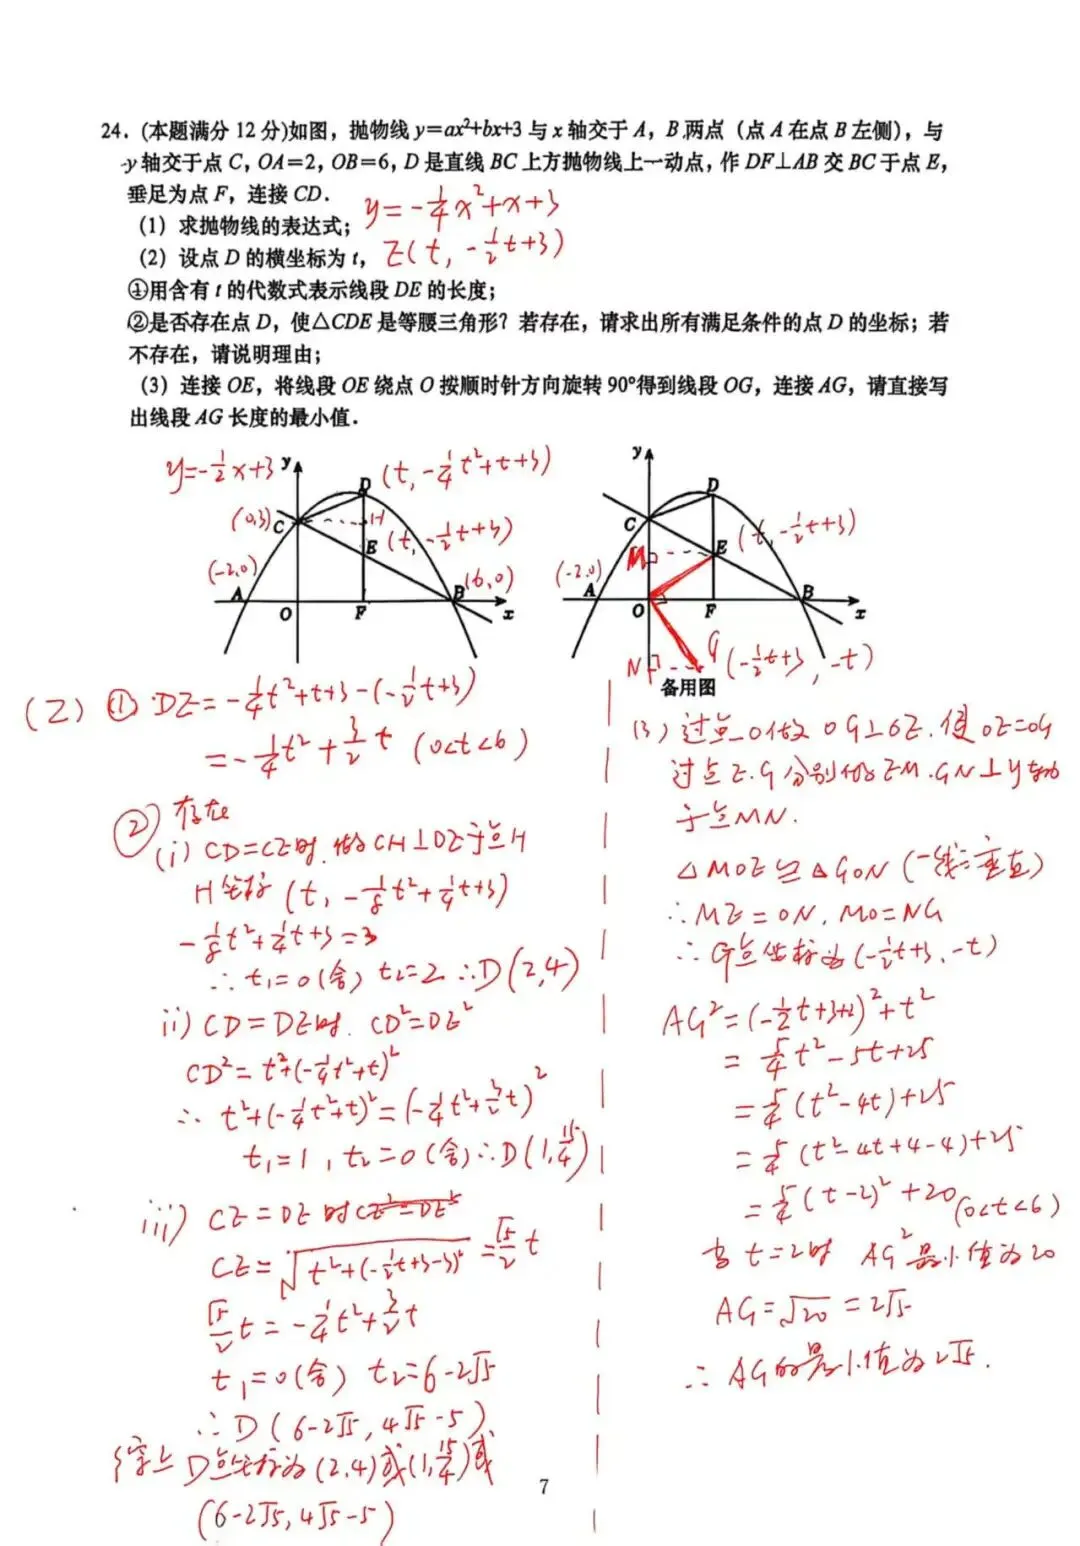 24.(本题满分 12 分)如图，抛物线 y=ax²+bx+3 与 x 轴交于 A，B 两点（点 A 在点 B 左侧），与
y 轴交于点 C，OA=2，OB=6，D 是直线 BC 上方抛物线上一动点，作 DF⊥AB 交 BC 于点 E，
垂足为点 F，连接 CD．
y=-1/4x²+x+3
（1）求抛物线的表达式；
（2）设点 D 的横坐标为 t，
E(t, -1/2t+3)
①用含有 t 的代数式表示线段 DE 的长度；
②是否存在点 D，使△CDE 是等腰三角形？若存在，请求出所有满足条件的点 D 的坐标；若
不存在，请说明理由；
（3）连接 OE，将线段 OE 绕点 O 按顺时针方向旋转 90°得到线段 OG，连接 AG，请直接写
出线段 AG 长度的最小值．
y=-1/2x+3
y
D
(t, -1/4t²+t+3)
(0,3)
C
H
E
(t, -1/2t+3)
(-2,0)
A
O
F
B
(6,0)
x
y
D
C
M
E
(t, -1/2t+3)
(-2,0)
A
O
F
B
x
N
G
(-1/2t+3, -t)
备用图
(2) ① DE=-1/4t²+t+3-(-1/2t+3)
=-1/4t²+3/2t (0<t<6)
② 存在
(i) CD=CE时,做CH⊥DE于点H
H坐标(t, -1/8t²+1/4t+3)
-1/8t²+1/4t+3=3
∴t₁=0(舍) t₂=2 ∴D(2,4)
ii) CD=DE时. CD²=DE²
CD²=t²+(-1/4t²+t)²
∴ t²+(-1/4t²+t)²=(-1/4t²+3/2t)²
t₁=1, t₂=0(舍)∴D(1,15/4)
iii) CE=DE时 CE²=DE²
CE=√(t²+(-1/2t+3-3)²)=√5/2 t
√5/2 t=-1/4t²+3/2t
t₁=0(舍) t₂=6-2√5
∴D(6-2√5, 4√5-5)
综上 D点坐标为(2,4)或(1,15/4)或
(6-2√5, 4√5-5)
(3) 过点O做OG⊥OE.使OE=OG
过点E.G分别做EM.GN⊥y轴
于点MN.
△MOE≌△GON(一线三垂直)
∴ME=ON, MO=NG
∴G点坐标为(-1/2t+3, -t)
AG²=(-1/2t+3+2)²+t²
=5/4t²-5t+25
=5/4(t²-4t)+25
=5/4(t²-4t+4-4)+25
=5/4(t-2)²+20 (0<t<6)
当t=2时 AG²最小值为20
AG=√20=2√5
∴AG的最小值为2√5.
7